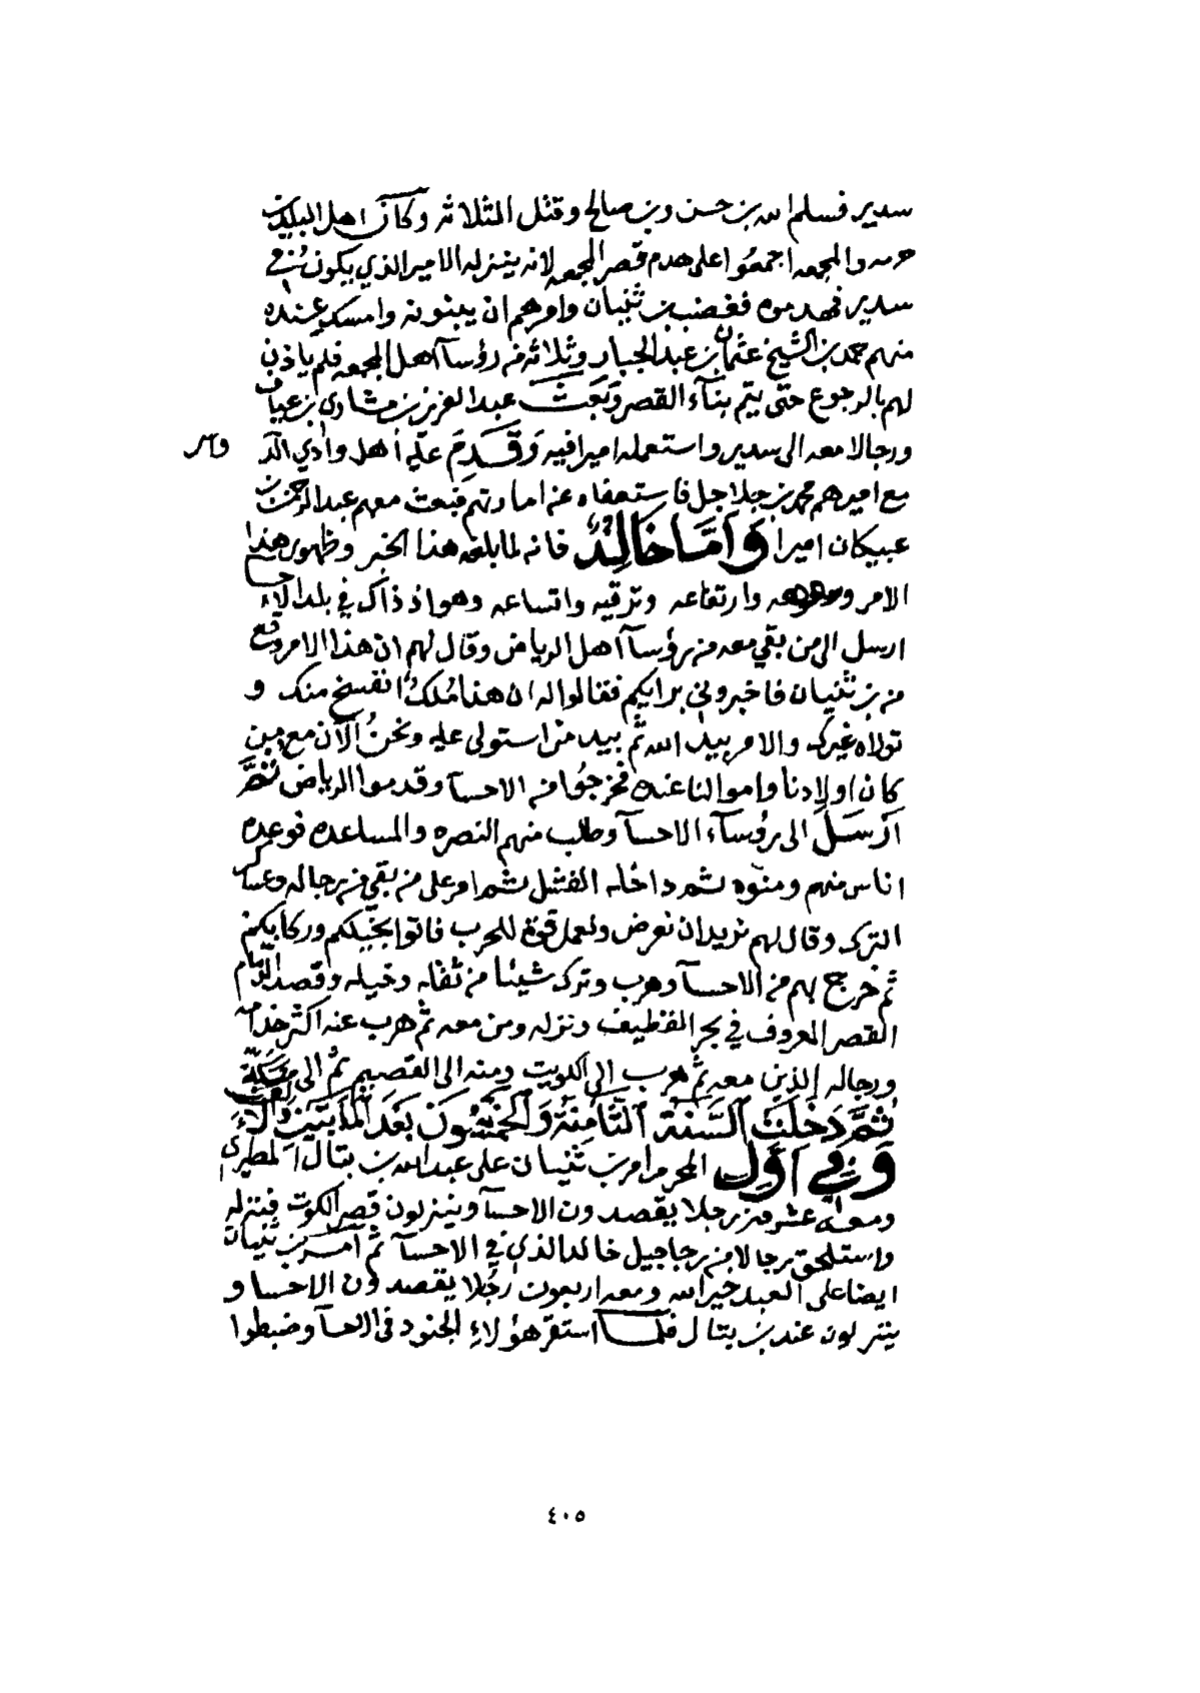 سدير فسلم الله بن حسن وبن صالح وقتل الثلاثه وكان اهل البلدين
حرمه والمجمعه اجمعوا على هدم قصر المجمعه لانه ينزله الامير الذي يكون في
سدير فهدموه فغضب بن ثنيان وامرهم ان يبنونه وامسك عنده
منهم حمد بن الشيخ عثمان بن عبد الجبار وثلاثه من رؤسآ اهل المجمعه فلم ياذن
لهم بالرجوع حتى يتم بنآء القصر وبعث عبد العزيز بن مشاري بن عياف
ورجالا معه الى سدير واستعمله اميرا فيه وقدم عليه أهل وادي الدواسر
مع اميرهم محمد بن جلاجل فاستعفاه عن امارتهم فبعث معهم عبد الرحمن بن
عبيكان اميرا وأما خالد فانه لما بلغه هذا الخبر وظهور هذا
الامر وارتفاعه وترقيه واتساعه وهو اذ ذاك في بلد الاحساء
ارسل الى من بقي معه من رؤسآ اهل الرياض وقال لهم ان هذا الامر وقع
من بن ثنيان فاخبروني برايكم فقالوا له ان هذا ملك انفسخ منك و
تولاه غيرك والامر بيد الله ثم بيد من استولى عليه ونحن الآن مع من
كان اولادنا واموالنا عنده فخرجوا من الاحسآ وقدموا الرياض ثم
ارسل الى رؤسآء الاحسآ وطلب منهم النصره والمساعده فوعده
اناس منهم ومنوه ثم داخله الفشل ثم امر على من بقي من رجاله وعساكر
الترك وقال لهم نريد ان نعرض ونعمل قوة للحرب فاتوا بخيلكم وركابكم
ثم خرج بهم من الاحسآ وهرب وترك شيئا من ثقله وخيله وقصد الدمام
القصر المعروف في بحر القطيف ونزله ومن معه ثم هرب عنه اكثر خدامه
ورجاله الذين معه ثم هرب الى الكويت ومنه الى القصيم ثم الى مكة
ثم دخلت السنة الثامنة والخمسون بعد المأتين والالف
وفي اول المحرم امر بن ثنيان على عبد الله بن بتال المطيري
ومعه عشرون رجلا يقصدون الاحسآ وينزلون قصر الكوت فنزله
واستلحق رجالا من رجاجيل خالد الذي في الاحسآ ثم آمر بن ثنيان
ايضا على العبد خير الله ومعه اربعون رجلا يقصدون الاحسا و
ينزلون عند بن بتال فلما استقر هؤلاء الجنود في الحسآ وضبطوا
٤٠٥